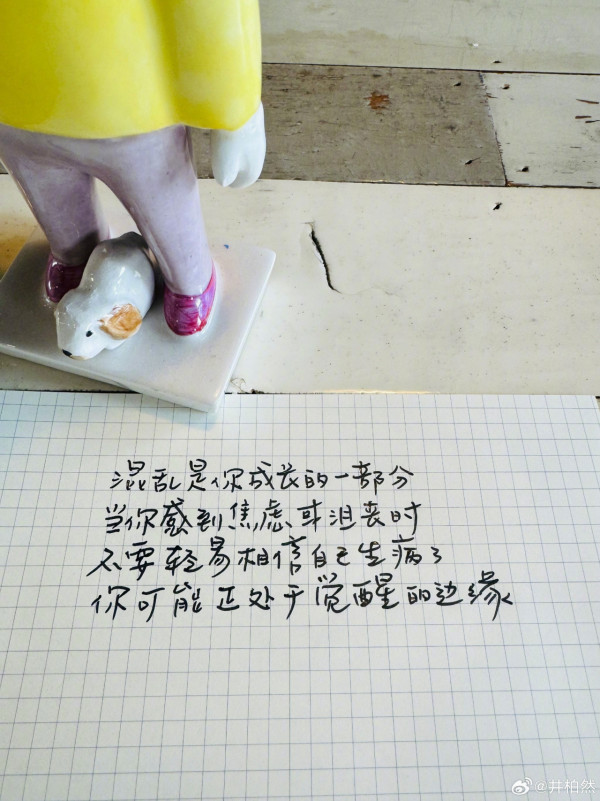 混乱是你成长的一部分
当你感到焦虑或沮丧时
不要轻易相信自己生病了
你可能正处于觉醒的边缘
@井柏然